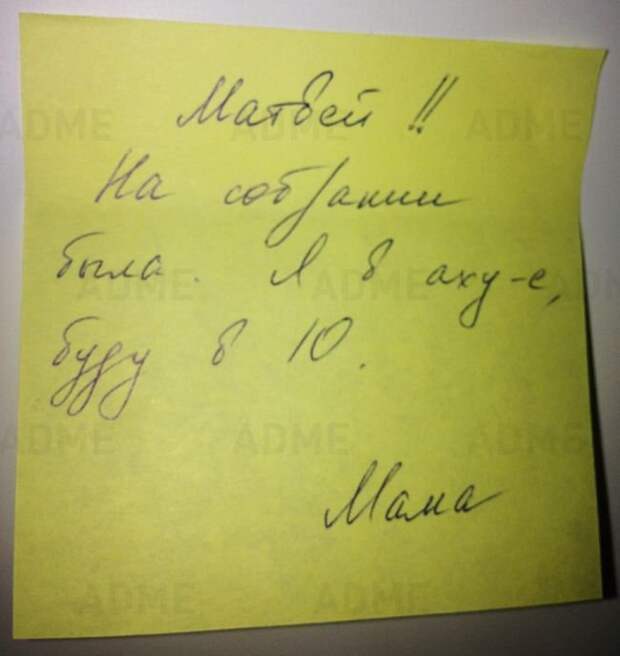 Матвей !!
На собрании
была. Я в аху-е,
буду в 10.
Мама
ADME ADME ADME
ADME ADME ADME
ADME ADME ADME
ADME ADME